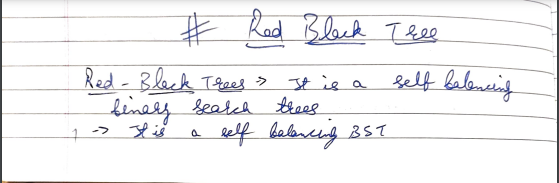 # Red Black Tree
Red - Black Trees → It is a self balancing
binary search trees
1 → It is a self balancing BST